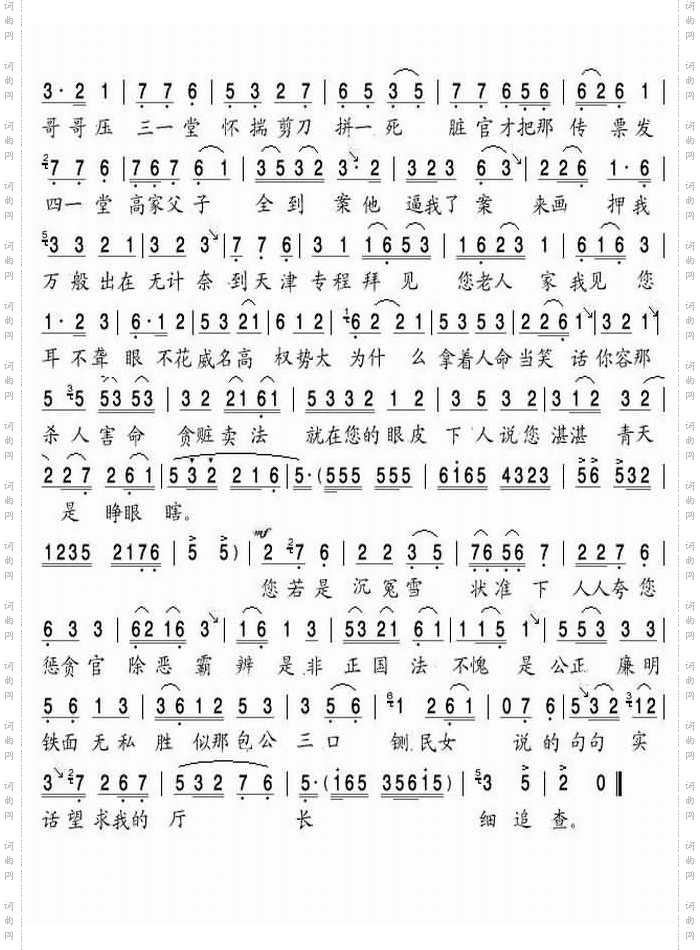 3· 2 1 | 7 7 6 | 5 3 2 7 | 6 5 3 5 | 7 7 6 5 6 | 6 2 6 1 |
哥哥压 三一堂 怀揣剪刀 拼一死 脏官才把那 传票发
7 7 6 | 7 6 7 6 1 | 3 5 3 2 3· 2 | 3 2 3 6 3 | 2 2 6 1· 6 |
四一堂 高家父子 全到案他 逼我了案 来画押我
3 3 2 1 | 3 2 3 | 7 7 6 | 3 1 1 6 5 3 | 1 6 2 3 1 | 6 1 6 3 |
万般出在 无计奈 到天津 专程拜见 您老人家 我见您
1· 2 3 | 6· 1 2 | 5 3 2 1 | 6 1 2 | 6 2 2 1 | 5 3 5 3 | 2 2 6 1 | 3 2 1 |
耳不聋 眼不花 威名高 权势大 为什么 拿着人命 当笑话 你容那
5 5 5 3 5 3 | 3 2 2 1 6 1 | 5 3 3 2 1 2 | 3 5 3 2 | 3 1 2 3 2 |
杀人害命 贪赃卖法 就在您的眼皮 下人说您 湛湛青天
2 2 7 2 6 1 | 5 3 2 2 1 6 | 5·(5 5 5 5 5 5 | 6 1 6 5 4 3 2 3 | 5 6 5 3 2 |
是睁眼瞎。
1 2 3 5 2 1 7 6 | 5 5) | mf 2 7 6 | 2 2 3 5 | 7 6 5 6 7 | 2 2 7 6 |
您若是 沉冤雪 状准下 人人夸您
6 3 3 | 6 2 1 6 3 | 1 6 1 3 | 5 3 2 1 6 1 | 1 1 5 1 | 5 5 3 3 3 |
惩贪官 除恶霸 辨是非 正国法 不愧是 公正廉明
5 6 1 3 | 3 6 1 2 5 3 | 3 5 6 | 1 2 6 1 | 0 7 6 | 5 3 2 1 2 |
铁面无私 胜似那包公 三口 铡民女 说的 句句实
3 7 2 6 7 | 5 3 2 7 6 | 5·(1 6 5 3 5 6 1 5) | 3 5 | 2 0 ‖
话望求我的 厅 长 细追查。
词曲网